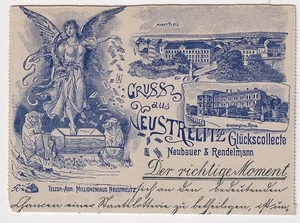 MARKTPLATZ
GRUSS
aus
NEUSTRELITZ
Glückscollecte
Neubauer & Rendelmann
Der richtige Moment
TELEGR.-ADR. MILLIONENHAUS NEUSTRELITZ
um den bedeutenden
Chancen einer Staatslotterie zu betheiligen, ist